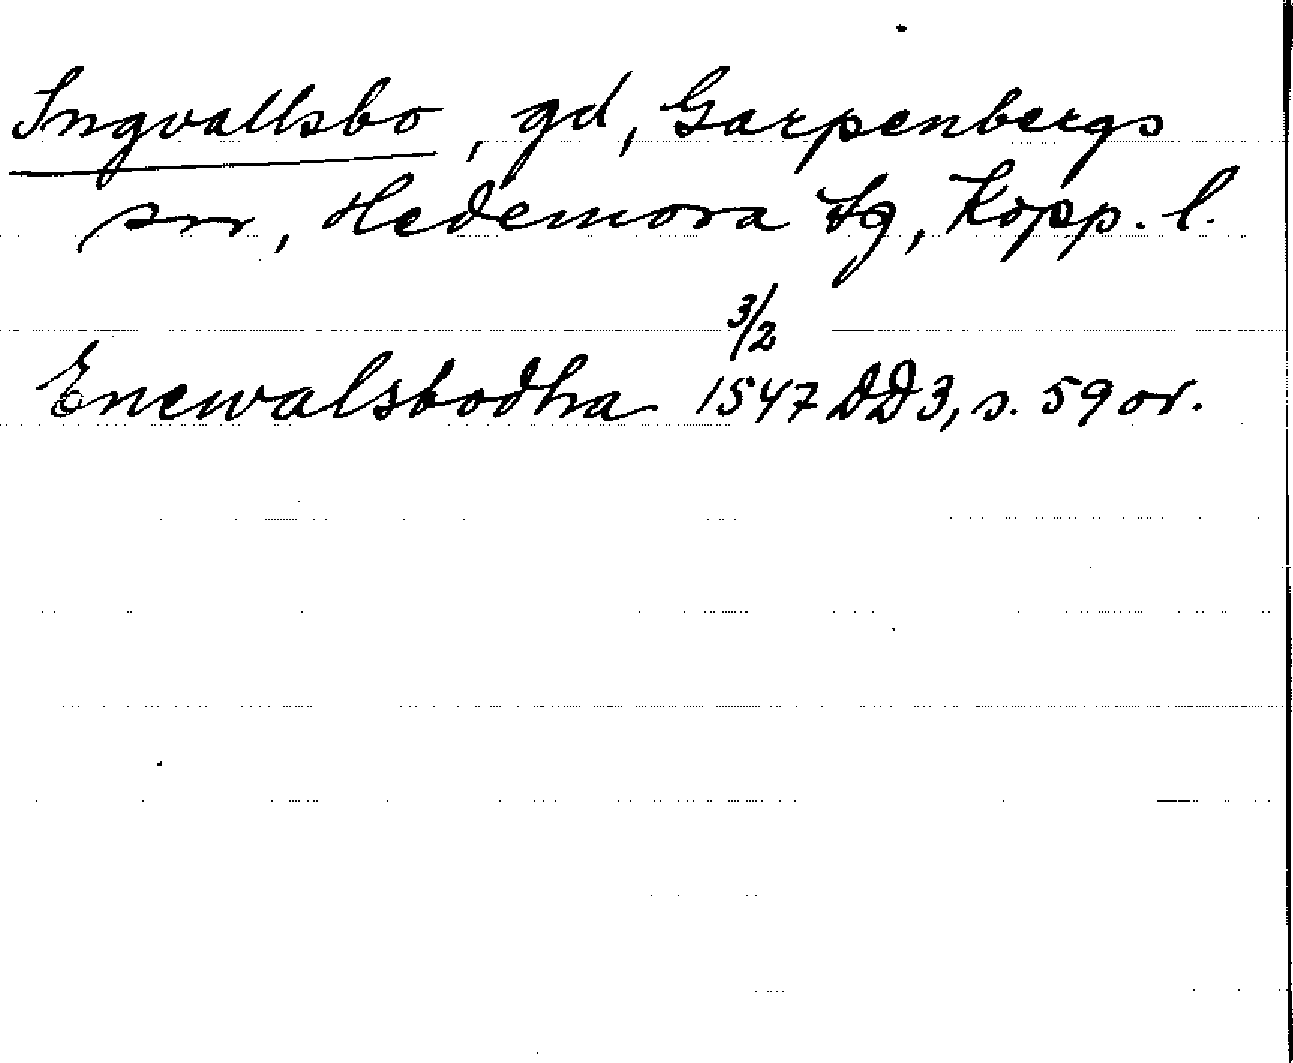 Ingvallsbo, gd, Garpenbergs
sn, Hedemora tg, Kopp. l.
3/2
Enewalsbodha 1547 DD3, s. 59 or.